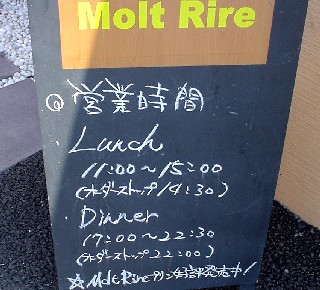 Molt Rire
◎営業時間
・Lunch
11:00～15:00
(オーダーストップ14:30)
・Dinner
17:00～22:30
(オーダーストップ22:00)
☆Molt Rireプリン好評発売中！